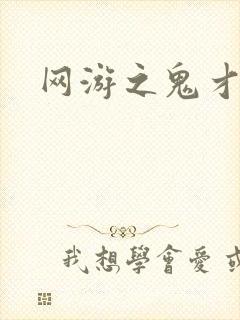 网游之鬼才
我想學會愛或